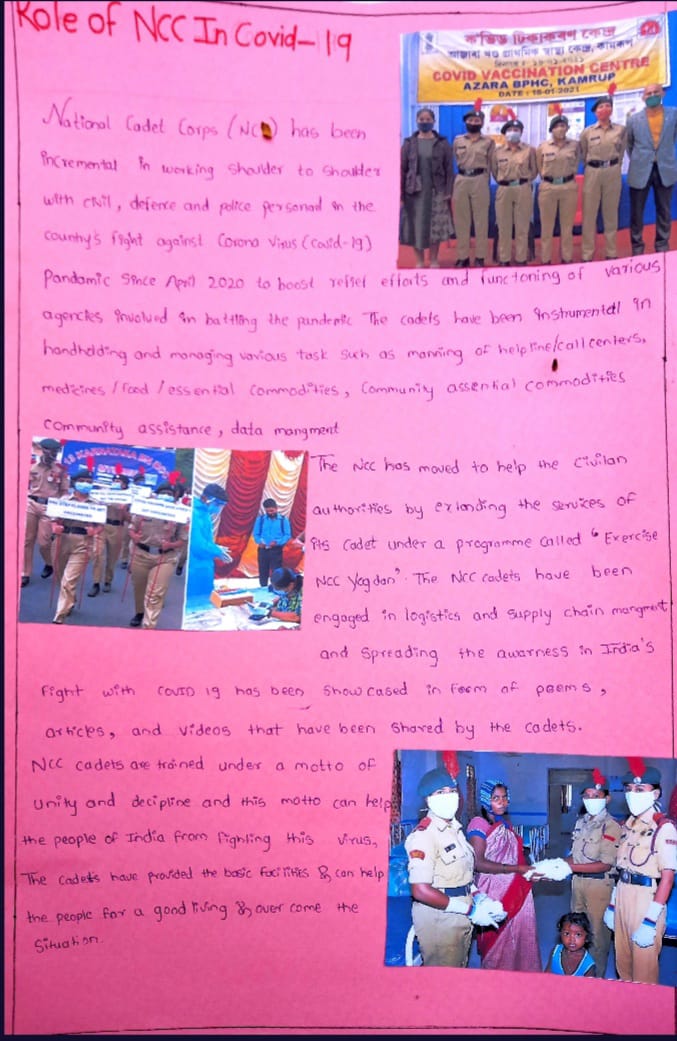 Role of NCC In Covid-19
কভিড টিকাকৰণ কেন্দ্ৰ
COVID VACCINATION CENTRE
AZARA BPHC, KAMRUP
DATE : 16-01-2021
National Cadet Corps (NC) has been
incremental in working shoulder to shoulder
with civil, defence and police personal in the
country's fight against Corona Virus (Covid-19)
Pandamic Since April 2020 to boost relief efforts and functoning of various
agencies involved in battling the pandemic The cadets have been instrumental in
handholding and managing various task such as manning of helpline/call centers,
medicines / food / essential commodities, Community assential commodities
community assistance, data mangment
The Ncc has moved to help the Civilan
authorities by extanding the services of
its Cadet under a programme called "Exercise
NCC Yogdan". The NCC cadets have been
engaged in logistics and supply chain mangment
and spreading the awarness in India's
fight with COVID 19 has been showcased in form of poems,
articles, and videos that have been shared by the cadets.
NCC cadets are trained under a motto of
unity and decipline and this motto can help
the people of India from fighting this virus,
The cadets have provided the basic facilities & can help
the people for a good living & over come the
situation.